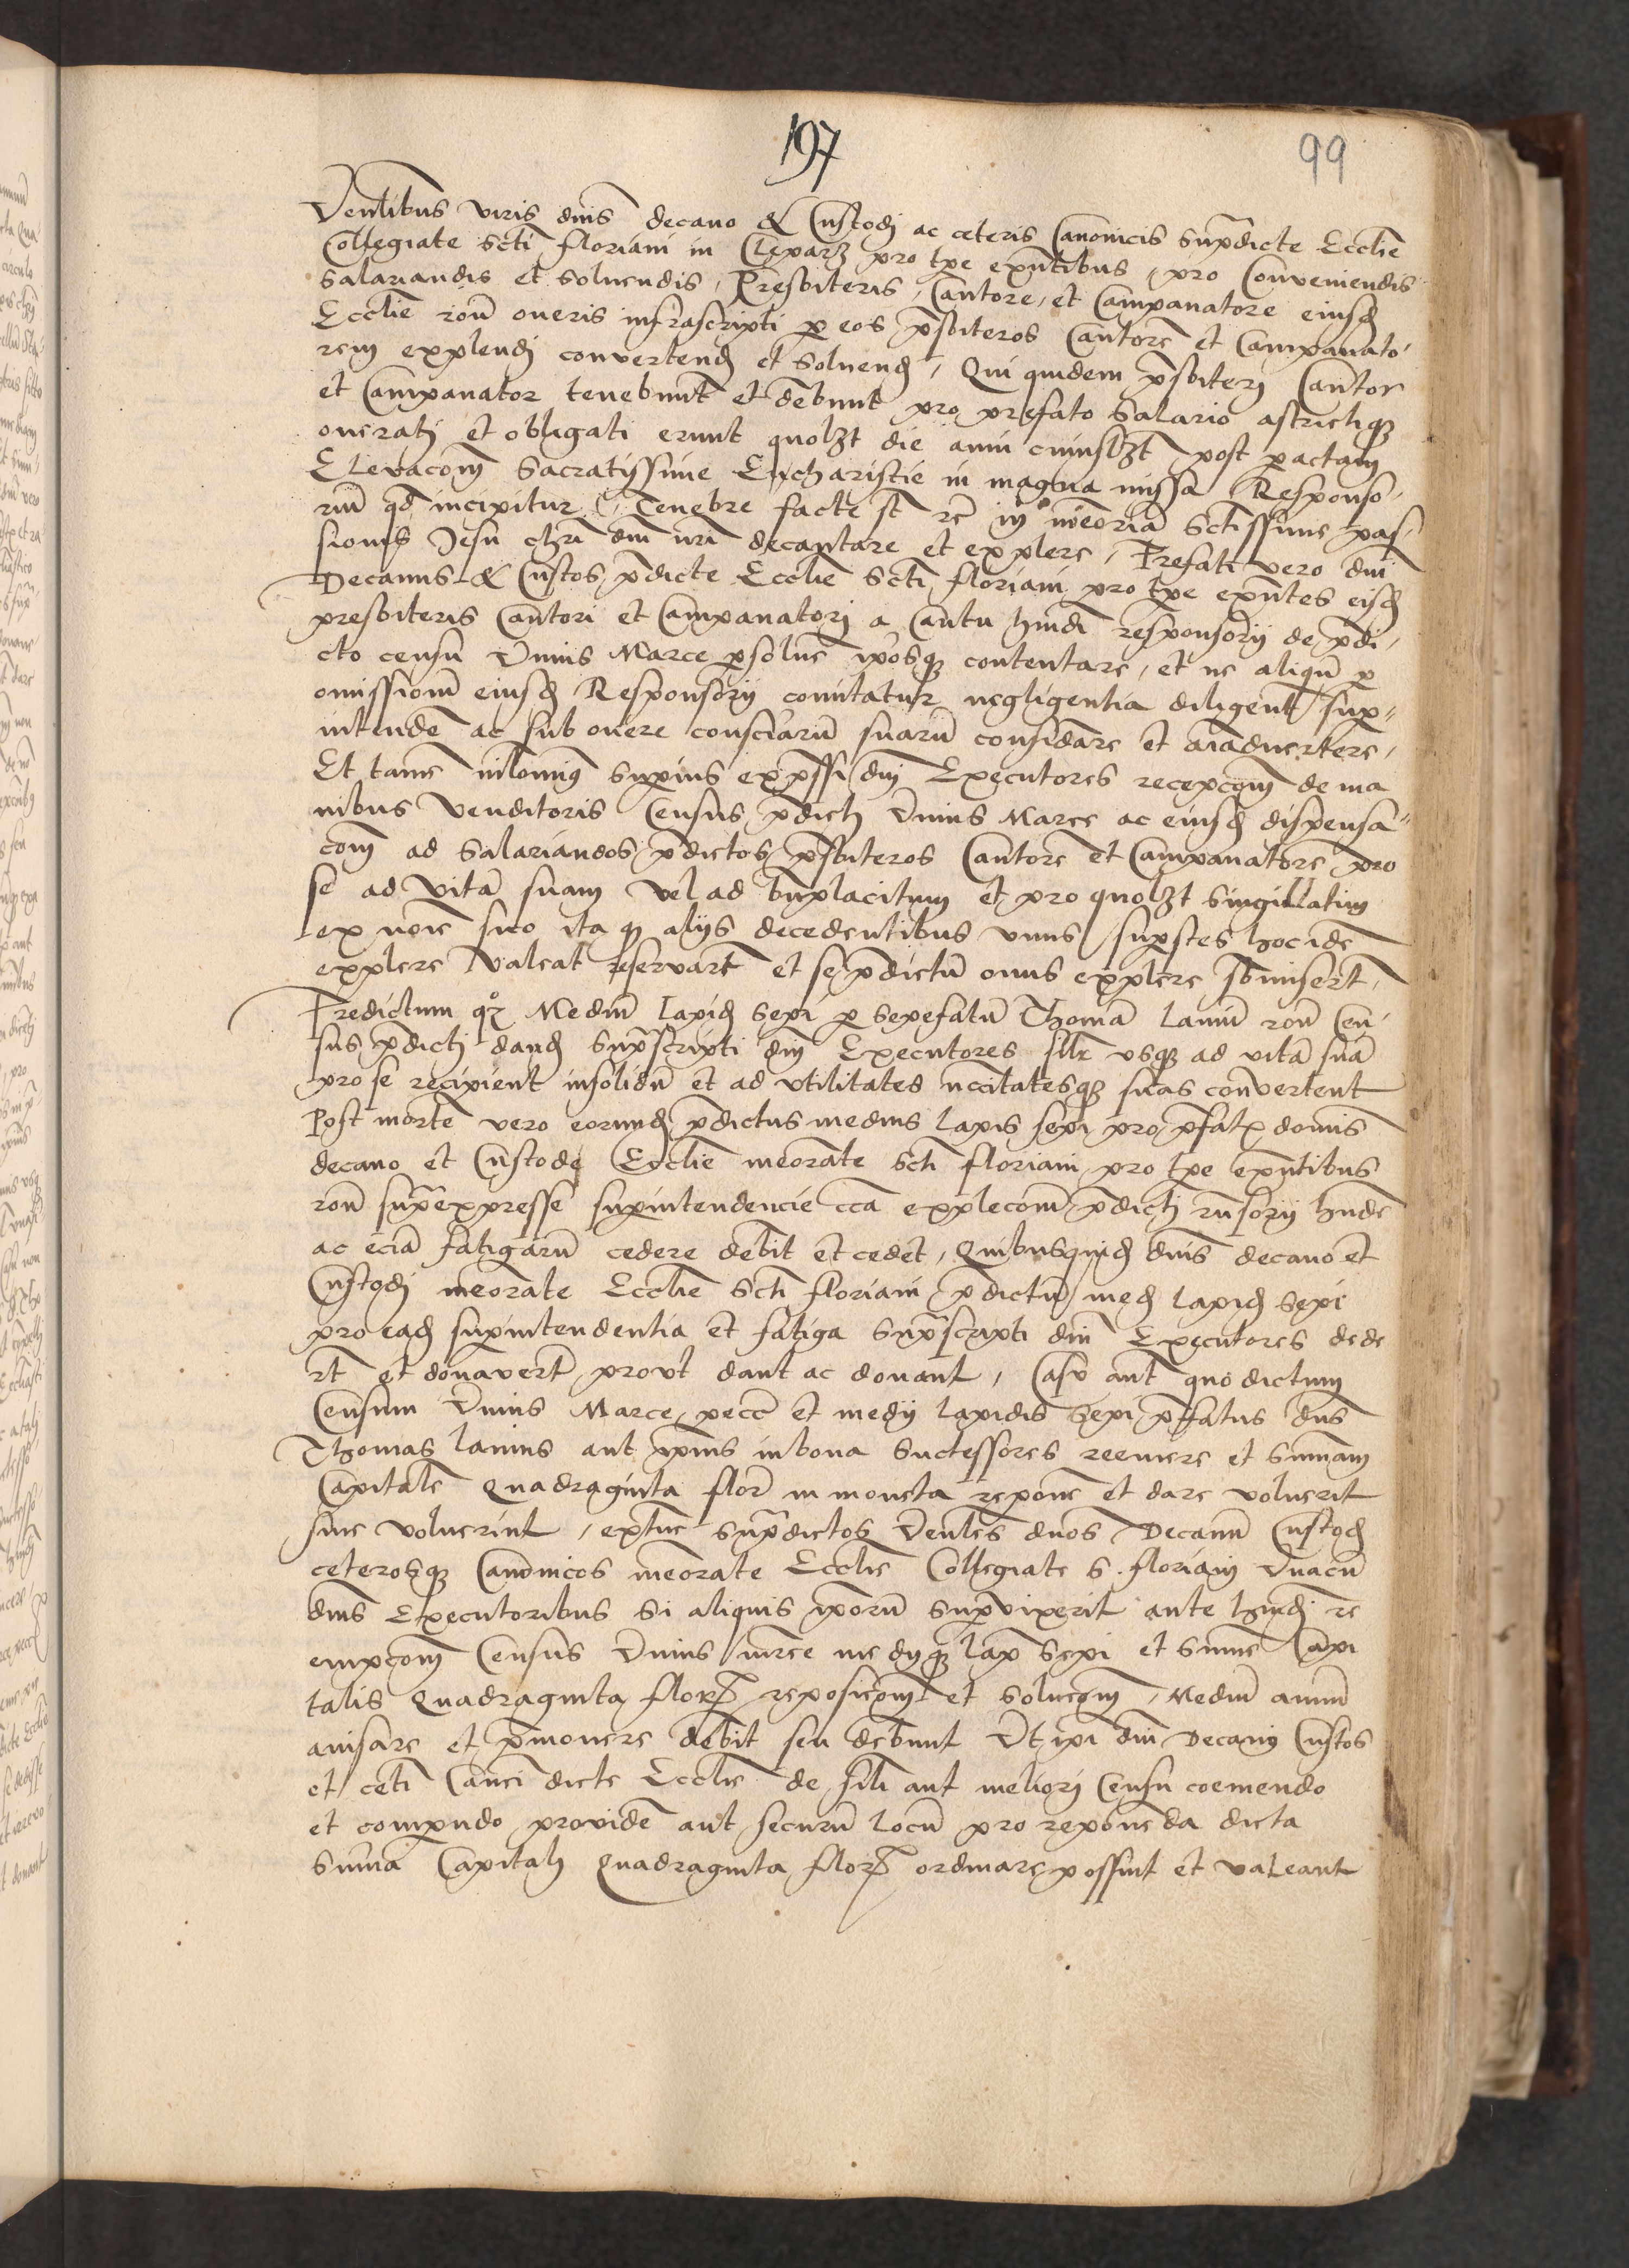 197
99
Ven̄libus viris dn̄is decano & Custodj ac ceteris Canonicis supradicte Eccl̄ie
Collegiate Sct̄i floriani in Cleparz pro tp̄e exn̄tibus, pro Conveniendis
Salariandis et Soluendis, Presbiteris, Cantore, et Campanatore eiusđ
Eccl̄ie rōn oneris infrascripti per eos p̄sbiteros Cantorē et Campanato,
rem explendj convertenđ et Soluenđ, Qui quidem p̄sbiterj Cantor
et Campanator tenebunt̄ et dēbunt pro prefato Salario astrictiqʒ
oneratj et obligati erunt quolʒt die anni cuiuslʒt post peractam
Elevacōm Sacratissime Eucharistie in magna missa Responso,
riū qđ incipitur, Tenebre facte s̄t rē in mēoriā Sct̄issime pas,
sionis Jesu chr̄i dn̄i nr̄i decantare et explere, Prefati vero dn̄i
Decanus & Custos p̄dicte Eccl̄ie Sct̄i floriani pro tp̄e exn̄tes eisđ
presbiteris Cantori et Campanatorj a Cantu hmōi responsorij de p̄di,
cto censu Vnius Marce persoluē ip̄osqʒ contentare, et ne aliqū per
omissionē eiusđ Responsorij comittatur negligentia diligent̄ sup,,
intendē ac sub onere consciārū suarū considare et aīaduertere,
Et tamē nilōminus superius exp̄ssi dn̄j Executores recepcōm de ma
nibus Venditoris Census p̄dictj Vnius Marce ac eiusđ dispensa,,
cōm ad Salariandos p̄dictos p̄sbiteros Cantorē et Campanatorē pro
se ad vitā suam vel ad bn̄placitum et pro quolʒt Singillatim
ex nōie suo ita qʒ alijs decedentibus vnus superstes hoc idē
explere valeat reservart̄ et se p̄dictū onus explere sbmisert̄,
Predictum qʒ Mediū lapiđ Sepi per sepefatū Thomā laniū rōn Cen,
sus p̄dictj danđ supra scripti dn̄j Executores sil̄r vsqʒ ad vitā suā
pro se recipient insolidū et ad vtilitates nc̄citatesqʒ suas convertent
Post mortē vero eorundđ p̄dictus medius lapis sepi pro p̄fatis domīs
decano et Custode Eccl̄ie mēorate Sct̄i floriani pro tp̄e exn̄tibus
rōn supra expresse superintendencie cca explecōm p̄dictj rn̄sorij hmōi
ac eciā fatigarū cedere debit et cedēt, Quibusquiđ dn̄is decano et
Custodj mēorate Eccl̄ie Sct̄i floriani p̄dictū međ lapiđ Sepi
pro eađ superintendentia et fatiga supra scripti dn̄i Executores dede
rt̄ et donavert̄ provt dant ac donant, Casu aut̄ quo dictum
Censum Vnius Marce pecc̄ et medij lapidis Sepi p̄fatus dn̄s
Thomas lanius aut ip̄ius in bona Successores reemere et sum̄am
Capitalē Quadraginta florē in moneta reponē et dare voluerit
siue voluerint, extūc supra dictos Ven̄les dnōs Decanū Custođ
ceterosqʒ Canōnicos mēorate Eccl̄ie Collegiate S. floriani Vnacū
dn̄is Executoribus Si aliquis ip̄orū supervixerit ante hmōi re
empcōm Census Vnius mr̄ce medijqʒ lap̄ Sepi et sum̄e Capi
talis Quadraginta florꝝ reposicōm et Solucōm, Mediū annū
avisare et p̄monere dēbit seu dēbunt Vt ip̄i dn̄i Decanus Custos
et cet̄i Canci dicte Eccl̄ie de sil̄i aut meliorj Censu coemendo
et comperando providē aut securū locū pro reponenda dicta
sum̄a Capitalj Quadraginta florꝝ ordinare possint et valeant